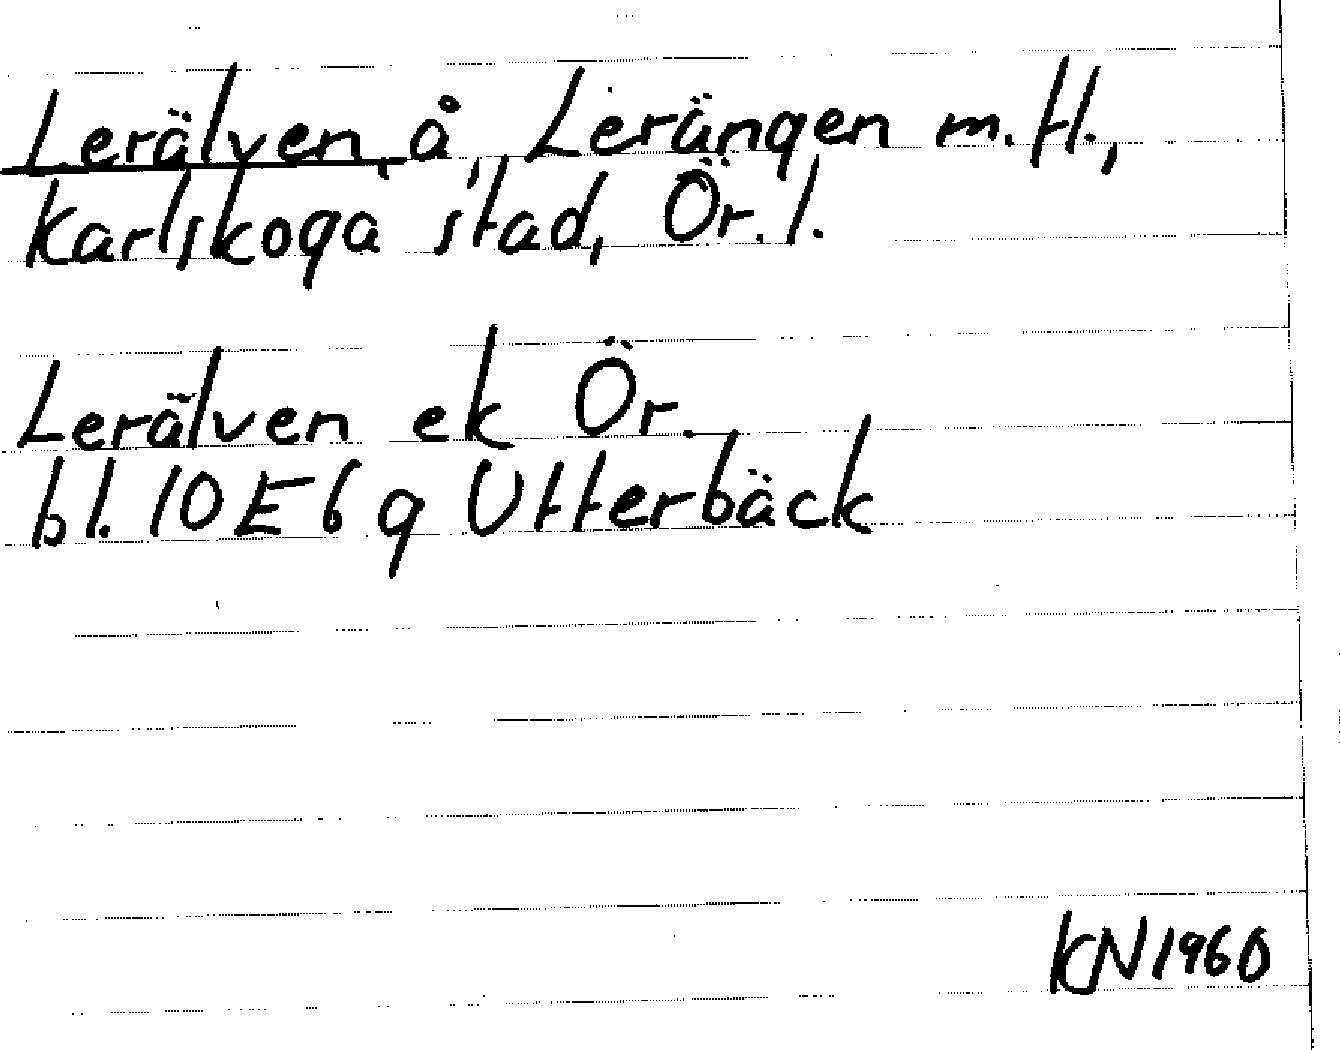 Lerälven, å, Lerängen m.fl.,
Karlskoga stad, Ör. l.
Lerälven ek Ör.
bl. 10E6g Utterbäck
KN1960